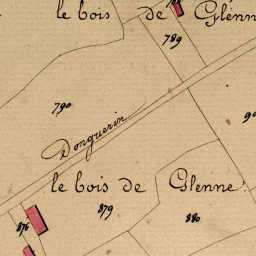 le bois de Glenne
789
790
90
Donguerin
le bois de Glenne.
879
880
876